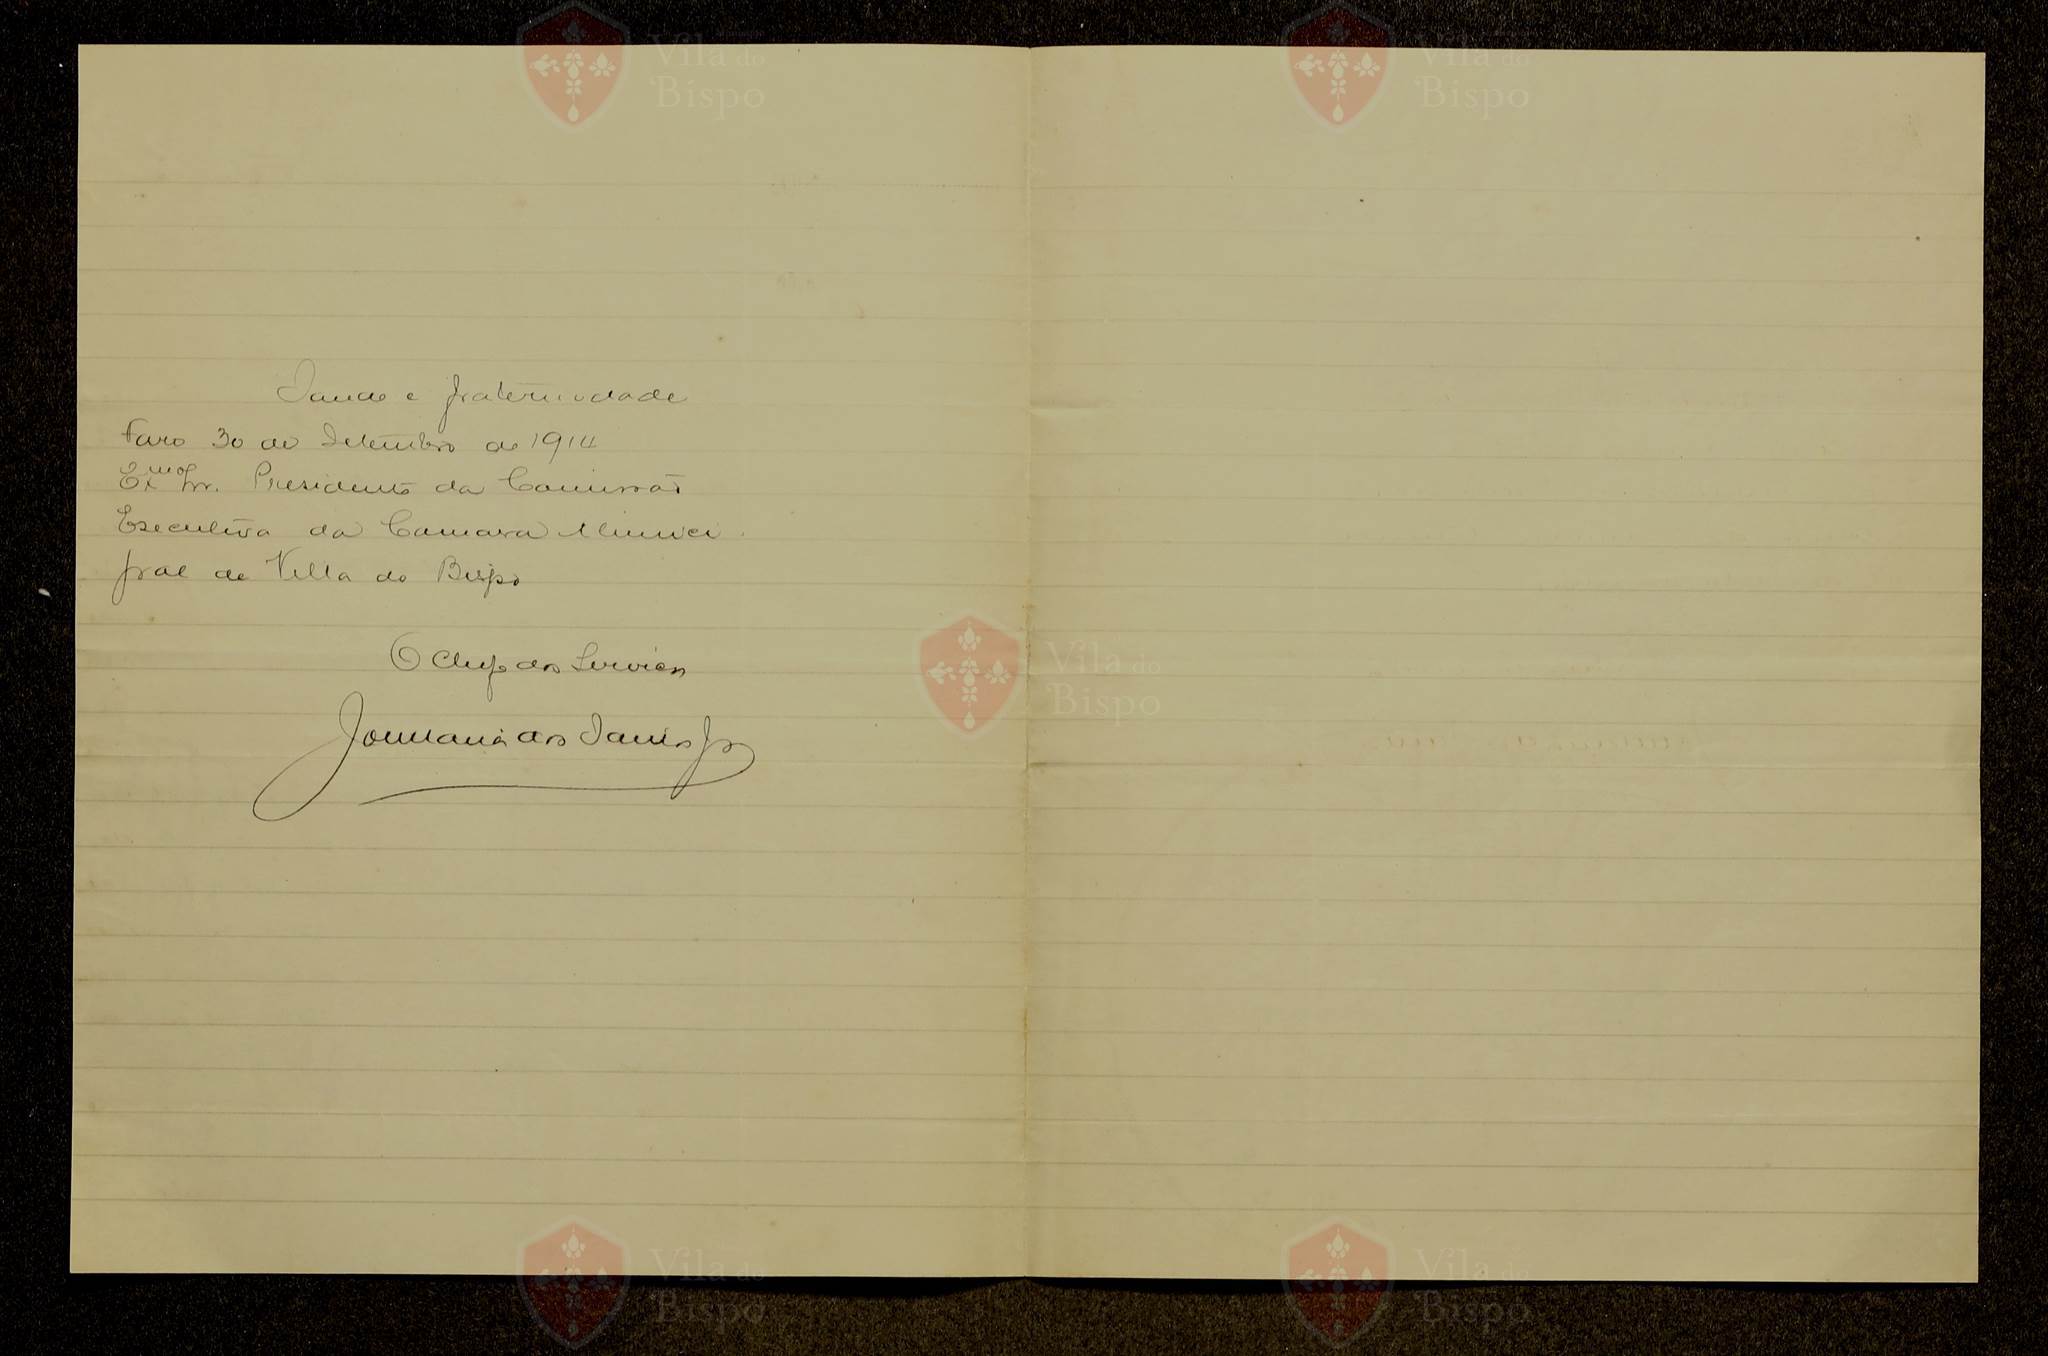 Vila do Bispo
Vila do Bispo
Saude e fraternidade
Faro 30 de Setembro de 1914
Exmo Sr. Presidente da Comissão
Executiva da Camara Munici
pal de Villa do Bispo
Vila do Bispo
O chefe dos Serviços
dos Santos Jr
Vila do Bispo
Vila do Bispo